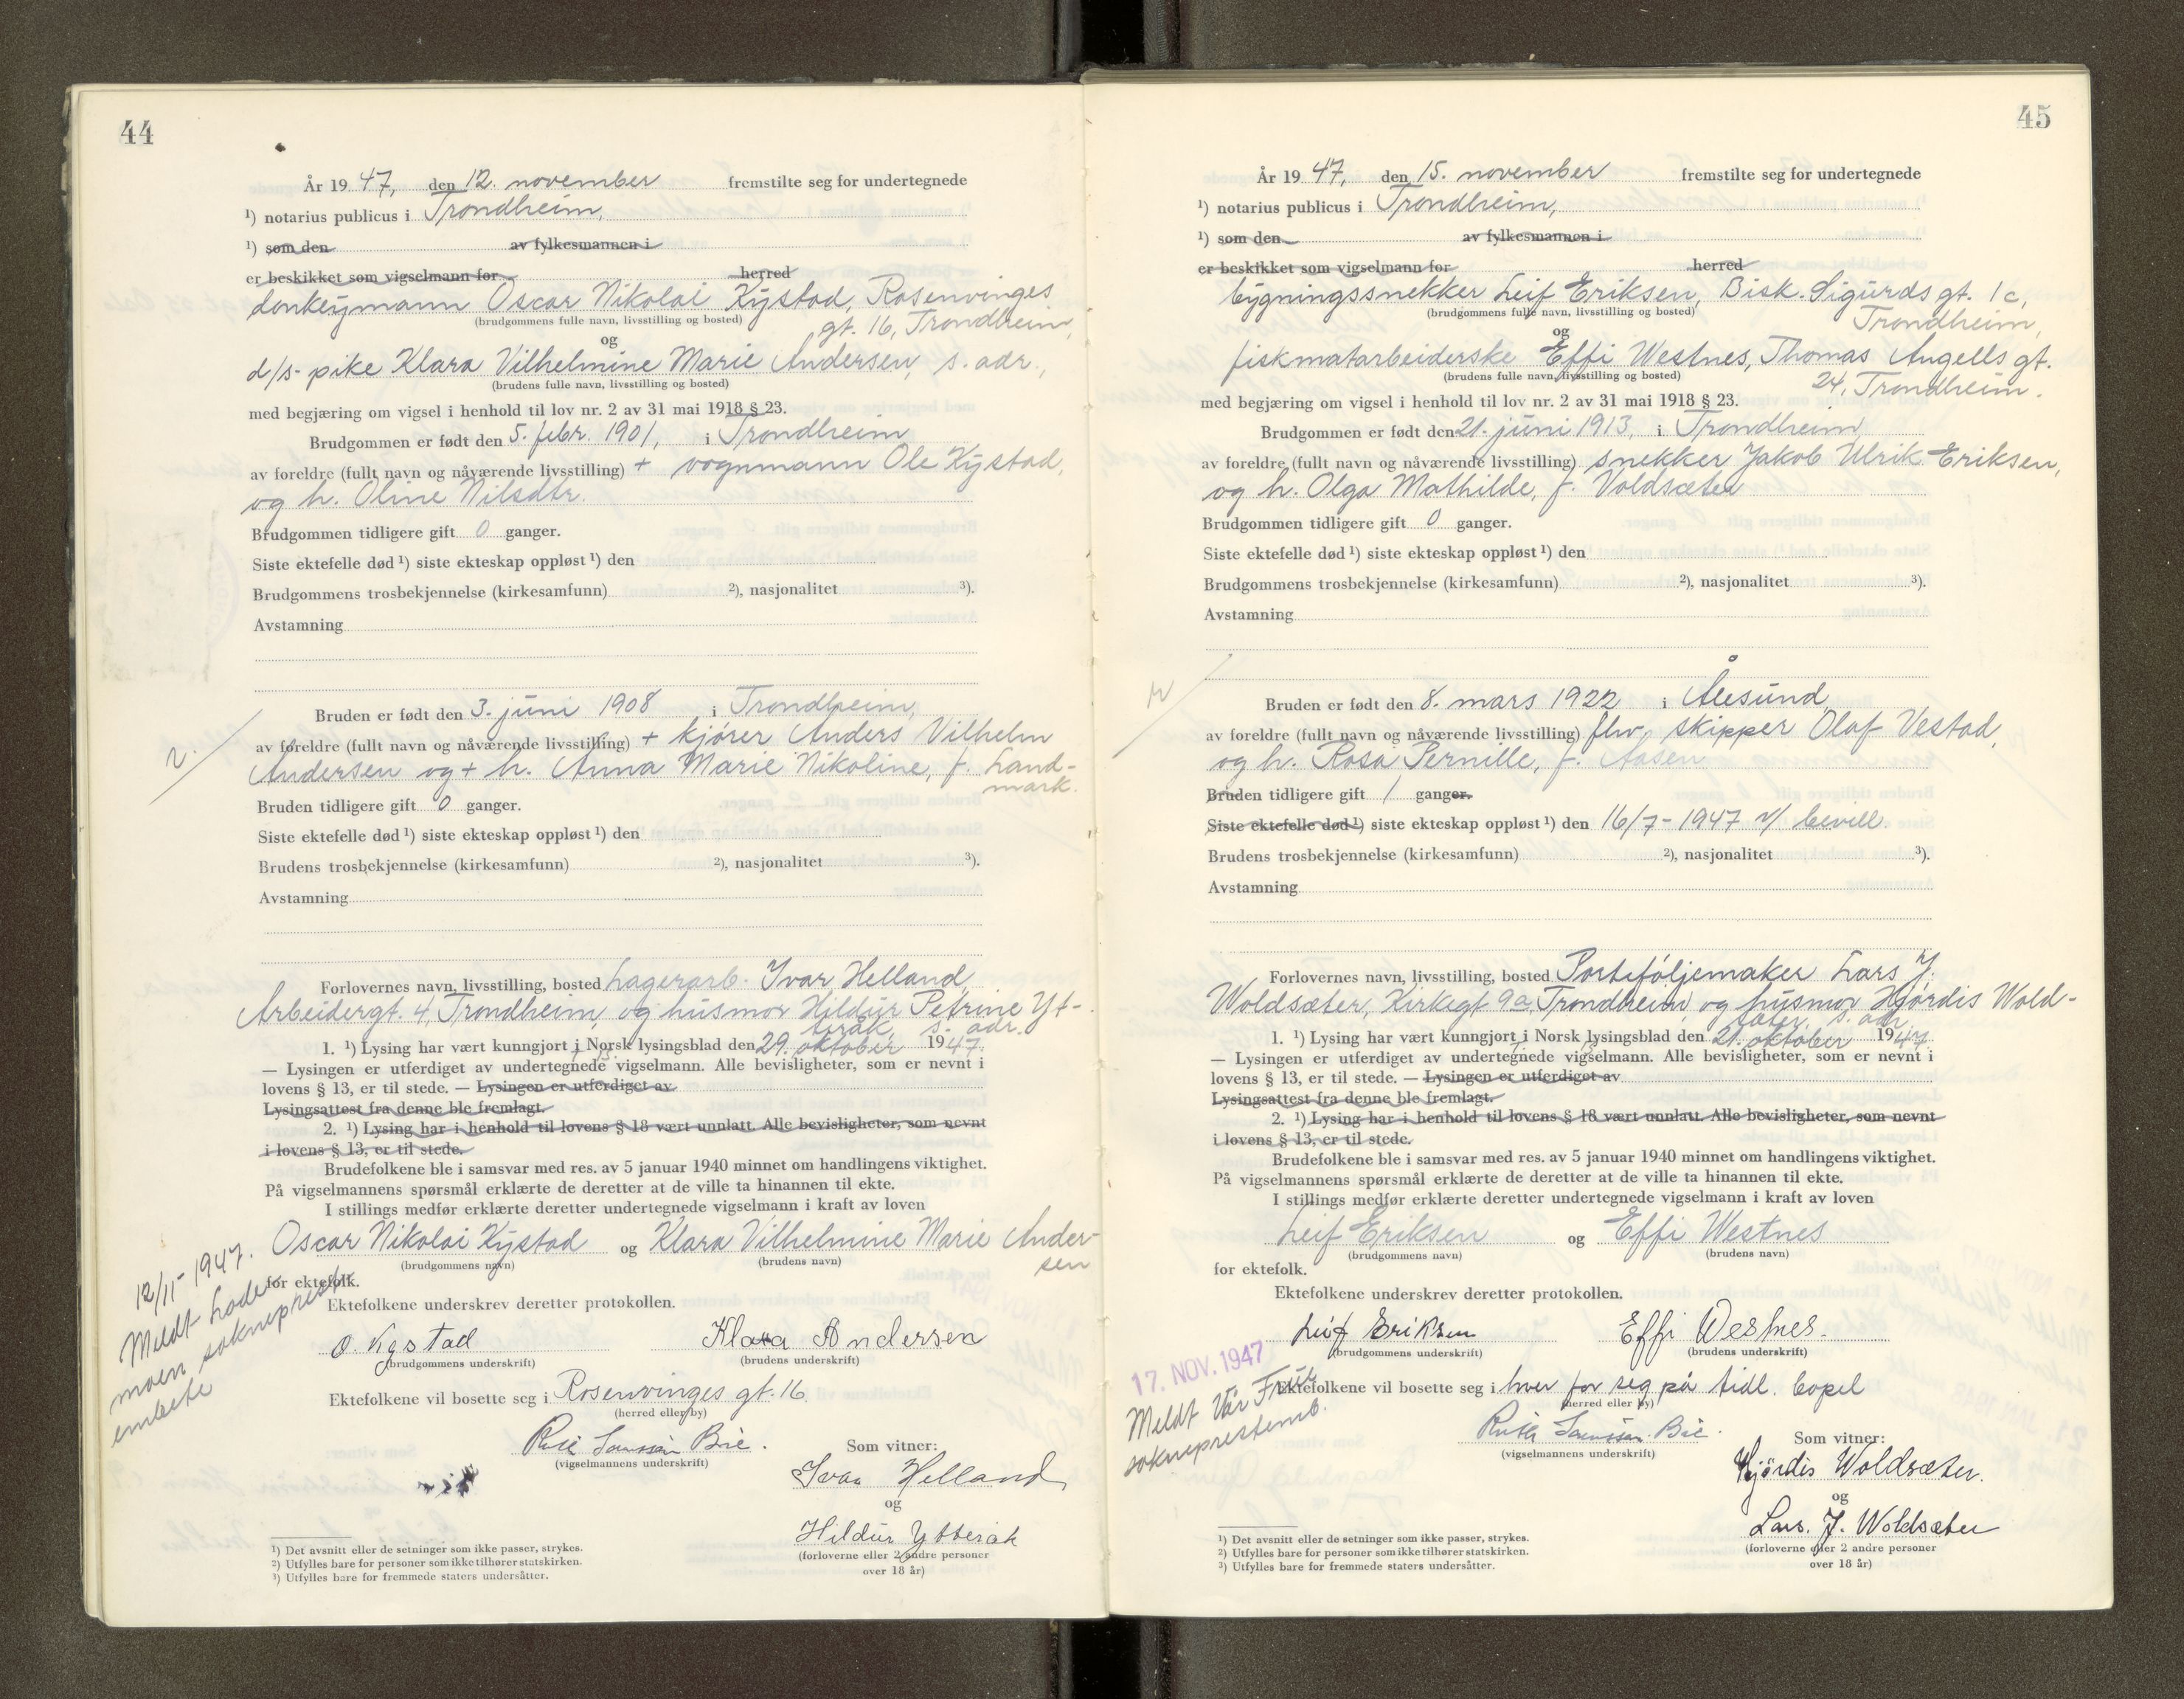 44
År 1947, den 12. november fremstilte seg for undertegnede
¹) notarius publicus i Trondheim,
¹) som den av fylkesmannen i
er beskikket som vigselmann for herred
donkeymann Oscar Nikolai Kystad, Rosenvinges
(brudgommens fulle navn, livsstilling og bosted) gt. 16, Trondheim,
og
d/s- pike Klara Vilhelmine Marie Andersen, s. adr.,
(brudens fulle navn, livsstilling og bosted)
med begjæring om vigsel i henhold til lov nr. 2 av 31 mai 1918 § 23.
Brudgommen er født den 5. febr. 1901, i Trondheim
av foreldre (fullt navn og nåværende livsstilling) + vognmann Ole Kystad,
og h. Oline Nilsdtr.
Brudgommen tidligere gift 0 ganger.
Siste ektefelle død ¹) siste ekteskap oppløst ¹) den
Brudgommens trosbekjennelse (kirkesamfunn) ²), nasjonalitet ³).
Avstamning
Bruden er født den 3. juni 1908 i Trondheim,
av foreldre (fullt navn og nåværende livsstilling) + kjører Anders Vilhelm
Andersen og + h. Anna Marie Nikoline, f. Land-
mark.
Bruden tidligere gift 0 ganger.
Siste ektefelle død ¹) siste ekteskap oppløst ¹) den
Brudens trosbekjennelse (kirkesamfunn) ²), nasjonalitet ³).
Avstamning
Forlovernes navn, livsstilling, bosted Lagerarb. Ivar Helland,
Arbeidergt. 4, Trondheim, og husmor Hildur Petrine Yt-
terak, s. adr.
1. ¹) Lysing har vært kunngjort i Norsk lysingsblad den 29. oktober 1947.
— Lysingen er utferdiget av undertegnede vigselmann. Alle bevisligheter, som er nevnt i
lovens § 13, er til stede. — Lysingen er utferdiget av
Lysingsattest fra denne ble fremlagt.
2. ¹) Lysing har i henhold til lovens § 18 vært unnlatt. Alle bevisligheter, som nevnt
i lovens § 13, er til stede.
Brudefolkene ble i samsvar med res. av 5 januar 1940 minnet om handlingens viktighet.
På vigselmannens spørsmål erklærte de deretter at de ville ta hinannen til ekte.
I stillings medfør erklærte deretter undertegnede vigselmann i kraft av loven
Oscar Nikolai Kystad og Klara Vilhelmine Marie Ander-
sen
(brudgommens navn) (brudens navn)
for ektefolk.
12/11-1947.
Meldt Lade
moen sokneprest
embete
Ektefolkene underskrev deretter protokollen.
O. Kystad Klara Andersen
(brudgommens underskrift) (brudens underskrift)
Ektefolkene vil bosette seg i Rosenvinges gt. 16
(herred eller by)
(vigselmannens underskrift)
Som vitner:
Ivar Helland
og
Hildur Ytterak
(forloverne eller 2 andre personer
over 18 år)
¹) Det avsnitt eller de setninger som ikke passer, strykes.
²) Utfylles bare for personer som ikke tilhører statskirken.
³) Utfylles bare for fremmede staters undersåtter.
45
År 1947, den 15. november fremstilte seg for undertegnede
¹) notarius publicus i Trondheim,
¹) som den av fylkesmannen i
er beskikket som vigselmann for herred
bygningssnekker Leif Eriksen, Bisk. Sigurds gt. 1c,
(brudgommens fulle navn, livsstilling og bosted) Trondheim,
og
fiskmatarbeiderske Effi Westnes, Thomas Angells gt.
(brudens fulle navn, livsstilling og bosted) 24, Trondheim.
med begjæring om vigsel i henhold til lov nr. 2 av 31 mai 1918 § 23.
Brudgommen er født den 21. juni 1913, i Trondheim
av foreldre (fullt navn og nåværende livsstilling) snekker Jakob Ulrik Eriksen,
og h. Olga Mathilde, f. Voldsæter
Brudgommen tidligere gift 0 ganger.
Siste ektefelle død ¹) siste ekteskap oppløst ¹) den
Brudgommens trosbekjennelse (kirkesamfunn) ²), nasjonalitet ³).
Avstamning
Bruden er født den 8. mars 1922 i Ålesund,
av foreldre (fullt navn og nåværende livsstilling) fhv. skipper Olaf Vestad,
og h. Rosa Pernille, f. Aasen
Bruden tidligere gift 1 ganger.
Siste ektefelle død ¹) siste ekteskap oppløst ¹) den 16/7-1947 v/ bevill.
Brudens trosbekjennelse (kirkesamfunn) ²), nasjonalitet ³).
Avstamning
Forlovernes navn, livsstilling, bosted Porteføljemaker Lars J.
Woldsæter, Kirkegt 9a, Trondheim, og husmor Hjørdis Wold-
sæter, s. adr.
1. ¹) Lysing har vært kunngjort i Norsk lysingsblad den 21. oktober 1947
— Lysingen er utferdiget av undertegnede vigselmann. Alle bevisligheter, som er nevnt i
lovens § 13, er til stede. — Lysingen er utferdiget av
Lysingsattest fra denne ble fremlagt.
2. ¹) Lysing har i henhold til lovens § 18 vært unnlatt. Alle bevisligheter, som nevnt
i lovens § 13, er til stede.
Brudefolkene ble i samsvar med res. av 5 januar 1940 minnet om handlingens viktighet.
På vigselmannens spørsmål erklærte de deretter at de ville ta hinannen til ekte.
I stillings medfør erklærte deretter undertegnede vigselmann i kraft av loven
Leif Eriksen og Effi Westnes
(brudgommens navn) (brudens navn)
for ektefolk.
Ektefolkene underskrev deretter protokollen.
Leif Eriksen Effi Westnes.
(brudgommens underskrift) (brudens underskrift)
17. NOV. 1947
Meldt Vår Frue
sokneprestemb.
Ektefolkene vil bosette seg i hver for seg på tidl. bopel
(herred eller by)
(vigselmannens underskrift)
Som vitner:
Hjördis Woldsæter.
og
Lars. J. Woldsæter
(forloverne eller 2 andre personer
over 18 år)
¹) Det avsnitt eller de setninger som ikke passer, strykes.
²) Utfylles bare for personer som ikke tilhører statskirken.
³) Utfylles bare for fremmede staters undersåtter.